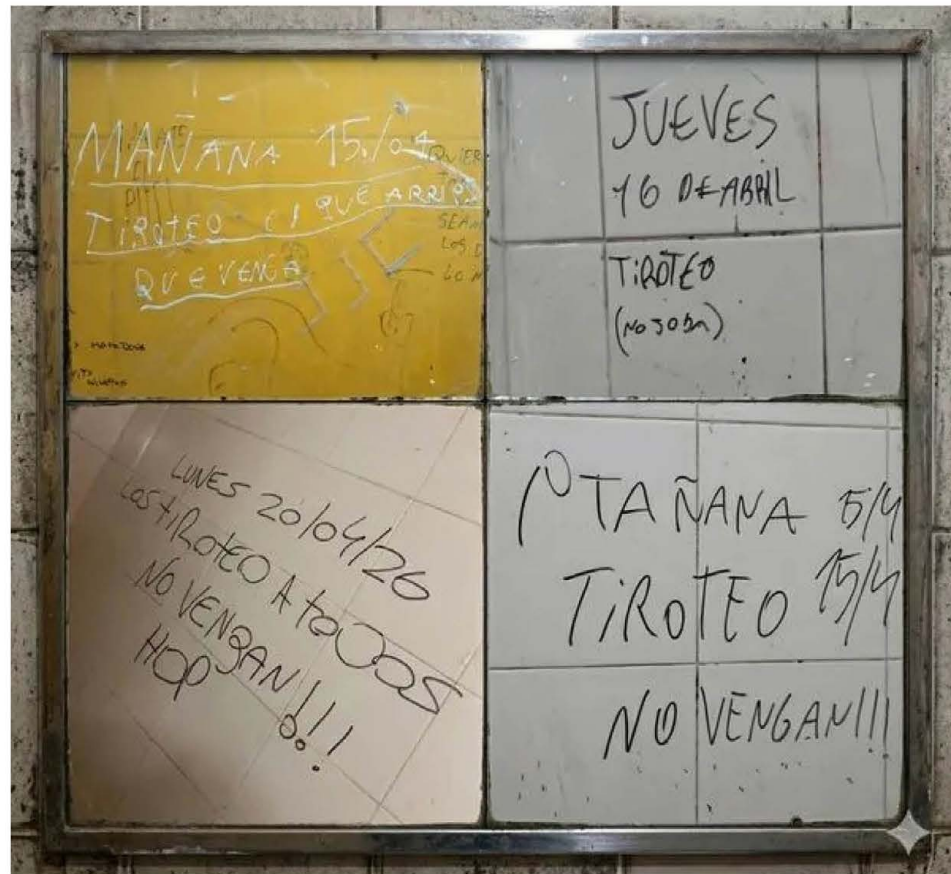 MAÑANA 15/04
TIROTEO EL QUE ARRIBA
QUE VENGA
SEAN
LOS
JUEVES
16 DE ABRIL
TIROTEO
(NO JODA)
LUNES 20/04/26
LOS TIROTEO A TODOS
NO VENGAN!!!
HOP
MAÑANA 15/4
TIROTEO 15/4
NO VENGAN!!!